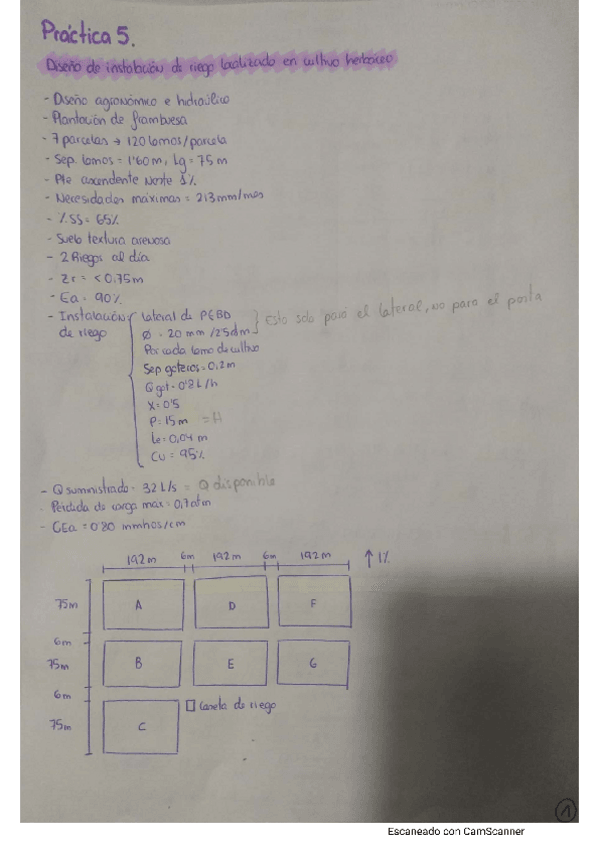 Práctica 5.
Diseño de instalación de riego localizado en cultivo herbáceo
- Diseño agronómico e hidraúlico
- Plantación de frambuesa
- 7 parcelas → 120 lomos/parcela
- Sep. lomos = 1'60 m, Lg = 75 m
- Pte ascendente Norte 1%
- Necesidades máximas = 213 mm/mes
- %SS = 65%
- Suelo textura arenosa
- 2 Riegos al día
- Zr = <0.75m
- Ea = 90%
- Instalación de riego
lateral de PEBD
Ø = 20 mm / 2'5 atm
Esto solo para el lateral, no para el porta
Por cada lomo de cultivo
Sep goteros = 0,2 m
Q got = 0'8 L/h
X = 0'5
P = 15 m = H
Le = 0,04 m
CU = 95%
- Q suministrado = 32 L/s = Q disponible
- Pérdida de carga max = 0,7 atm
- CEa = 0'80 mmhos/cm
192 m 6m 192 m 6m 192 m ↑ 1%
75m A D F
6m
75m B E G
6m
75m C Caseta de riego
1
Escaneado con CamScanner